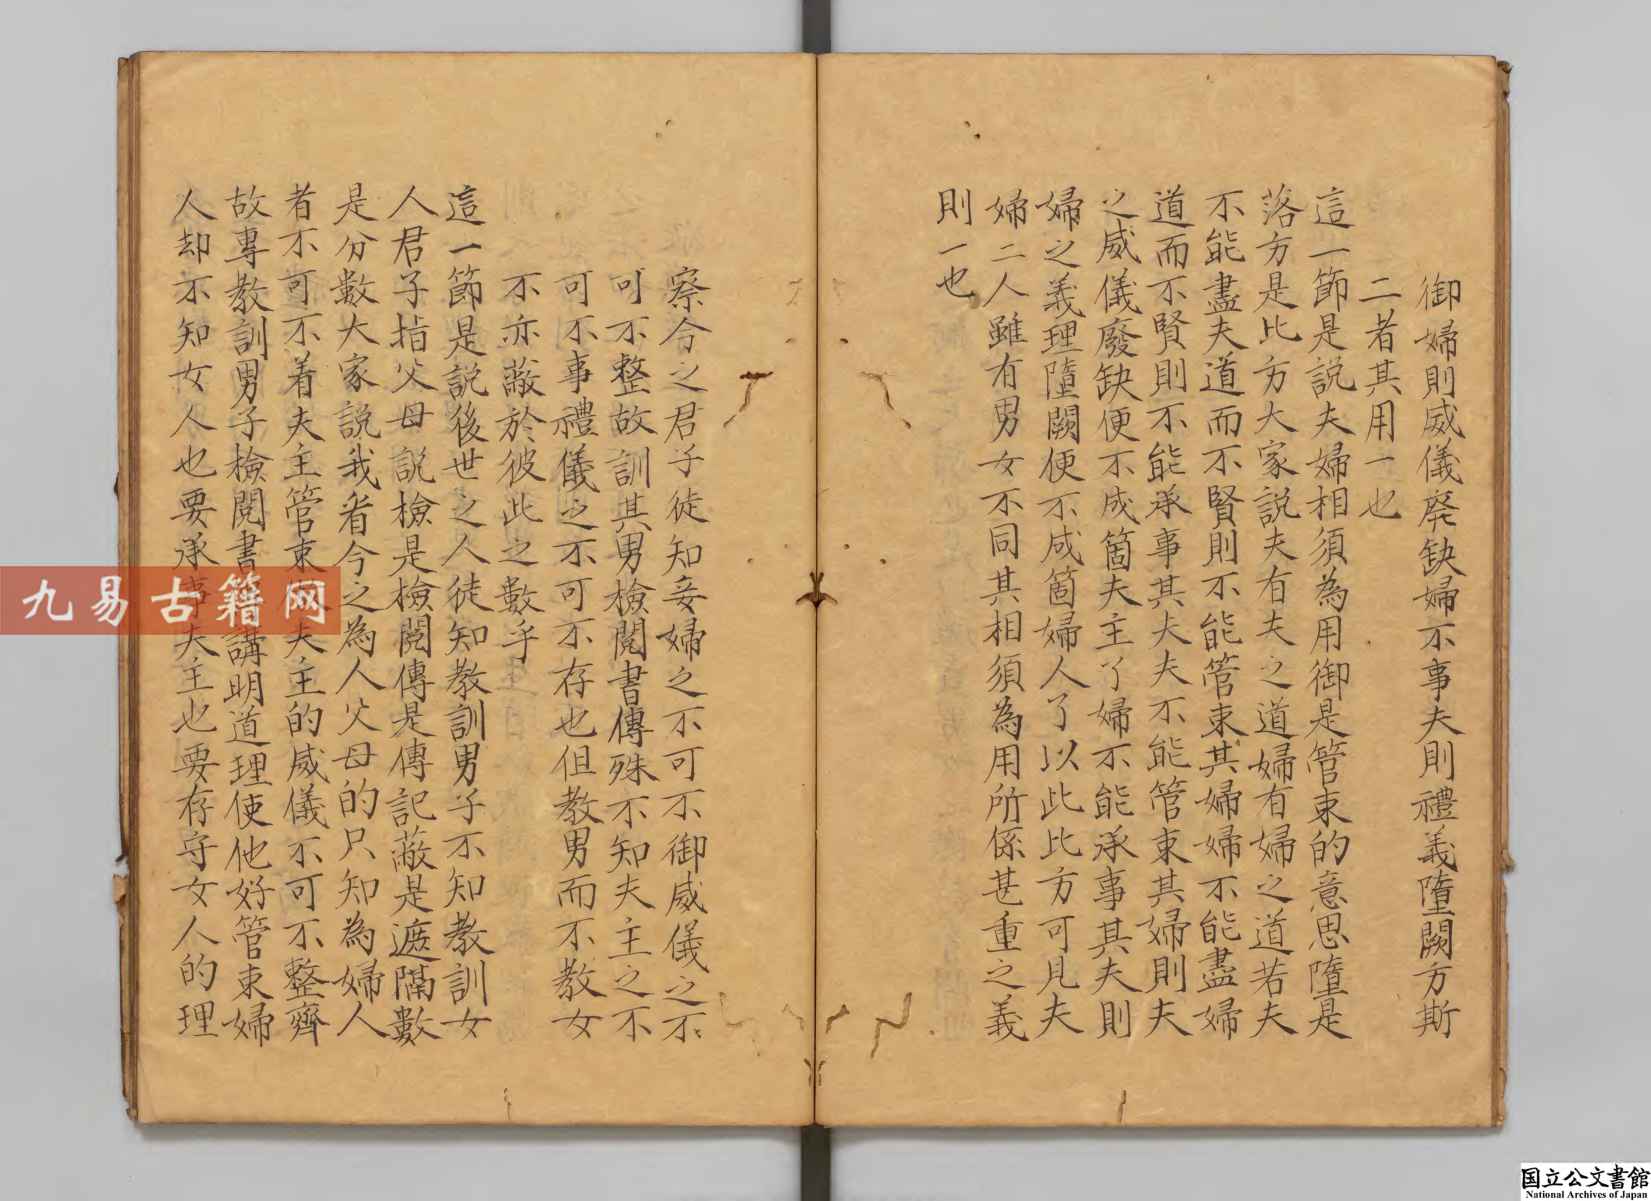 御婦則威儀廃缺婦不事夫則禮義墮闕方斯
二者其用一也
這一節是説夫婦相須為用御是管束的意思墮是
落方是比方大家説夫有夫之道婦有婦之道若夫
不能盡夫道而不賢則不能管束其婦婦不能盡婦
道而不賢則不能承事其夫夫不能管束其婦則夫
之威儀廢缺便不成箇夫主了婦不能承事其夫則
婦之義理墮闕便不成箇婦人了以此比方可見夫
婦二人雖有男女不同其相須為用所係甚重之義
則一也
察今之君子徒知妾婦之不可不御威儀之不
可不整故訓其男檢閲書傳殊不知夫主之不
可不事禮儀之不可不存也但教男而不教女
不亦蔽於彼此之數乎
這一節是説後世之人徒知教訓男子不知教訓女
人君子指父母説檢是檢閲傳是傳記蔽是遮隔數
是分數大家説我看今之為人父母的只知為婦人
者不可不着夫主管束夫主的威儀不可不整齊
故專教訓男子檢閲書講明道理使他好管束婦
人却不知女人也要承事夫主也要存守女人的理
九易古籍网
国立公文書館
National Archives of Japan